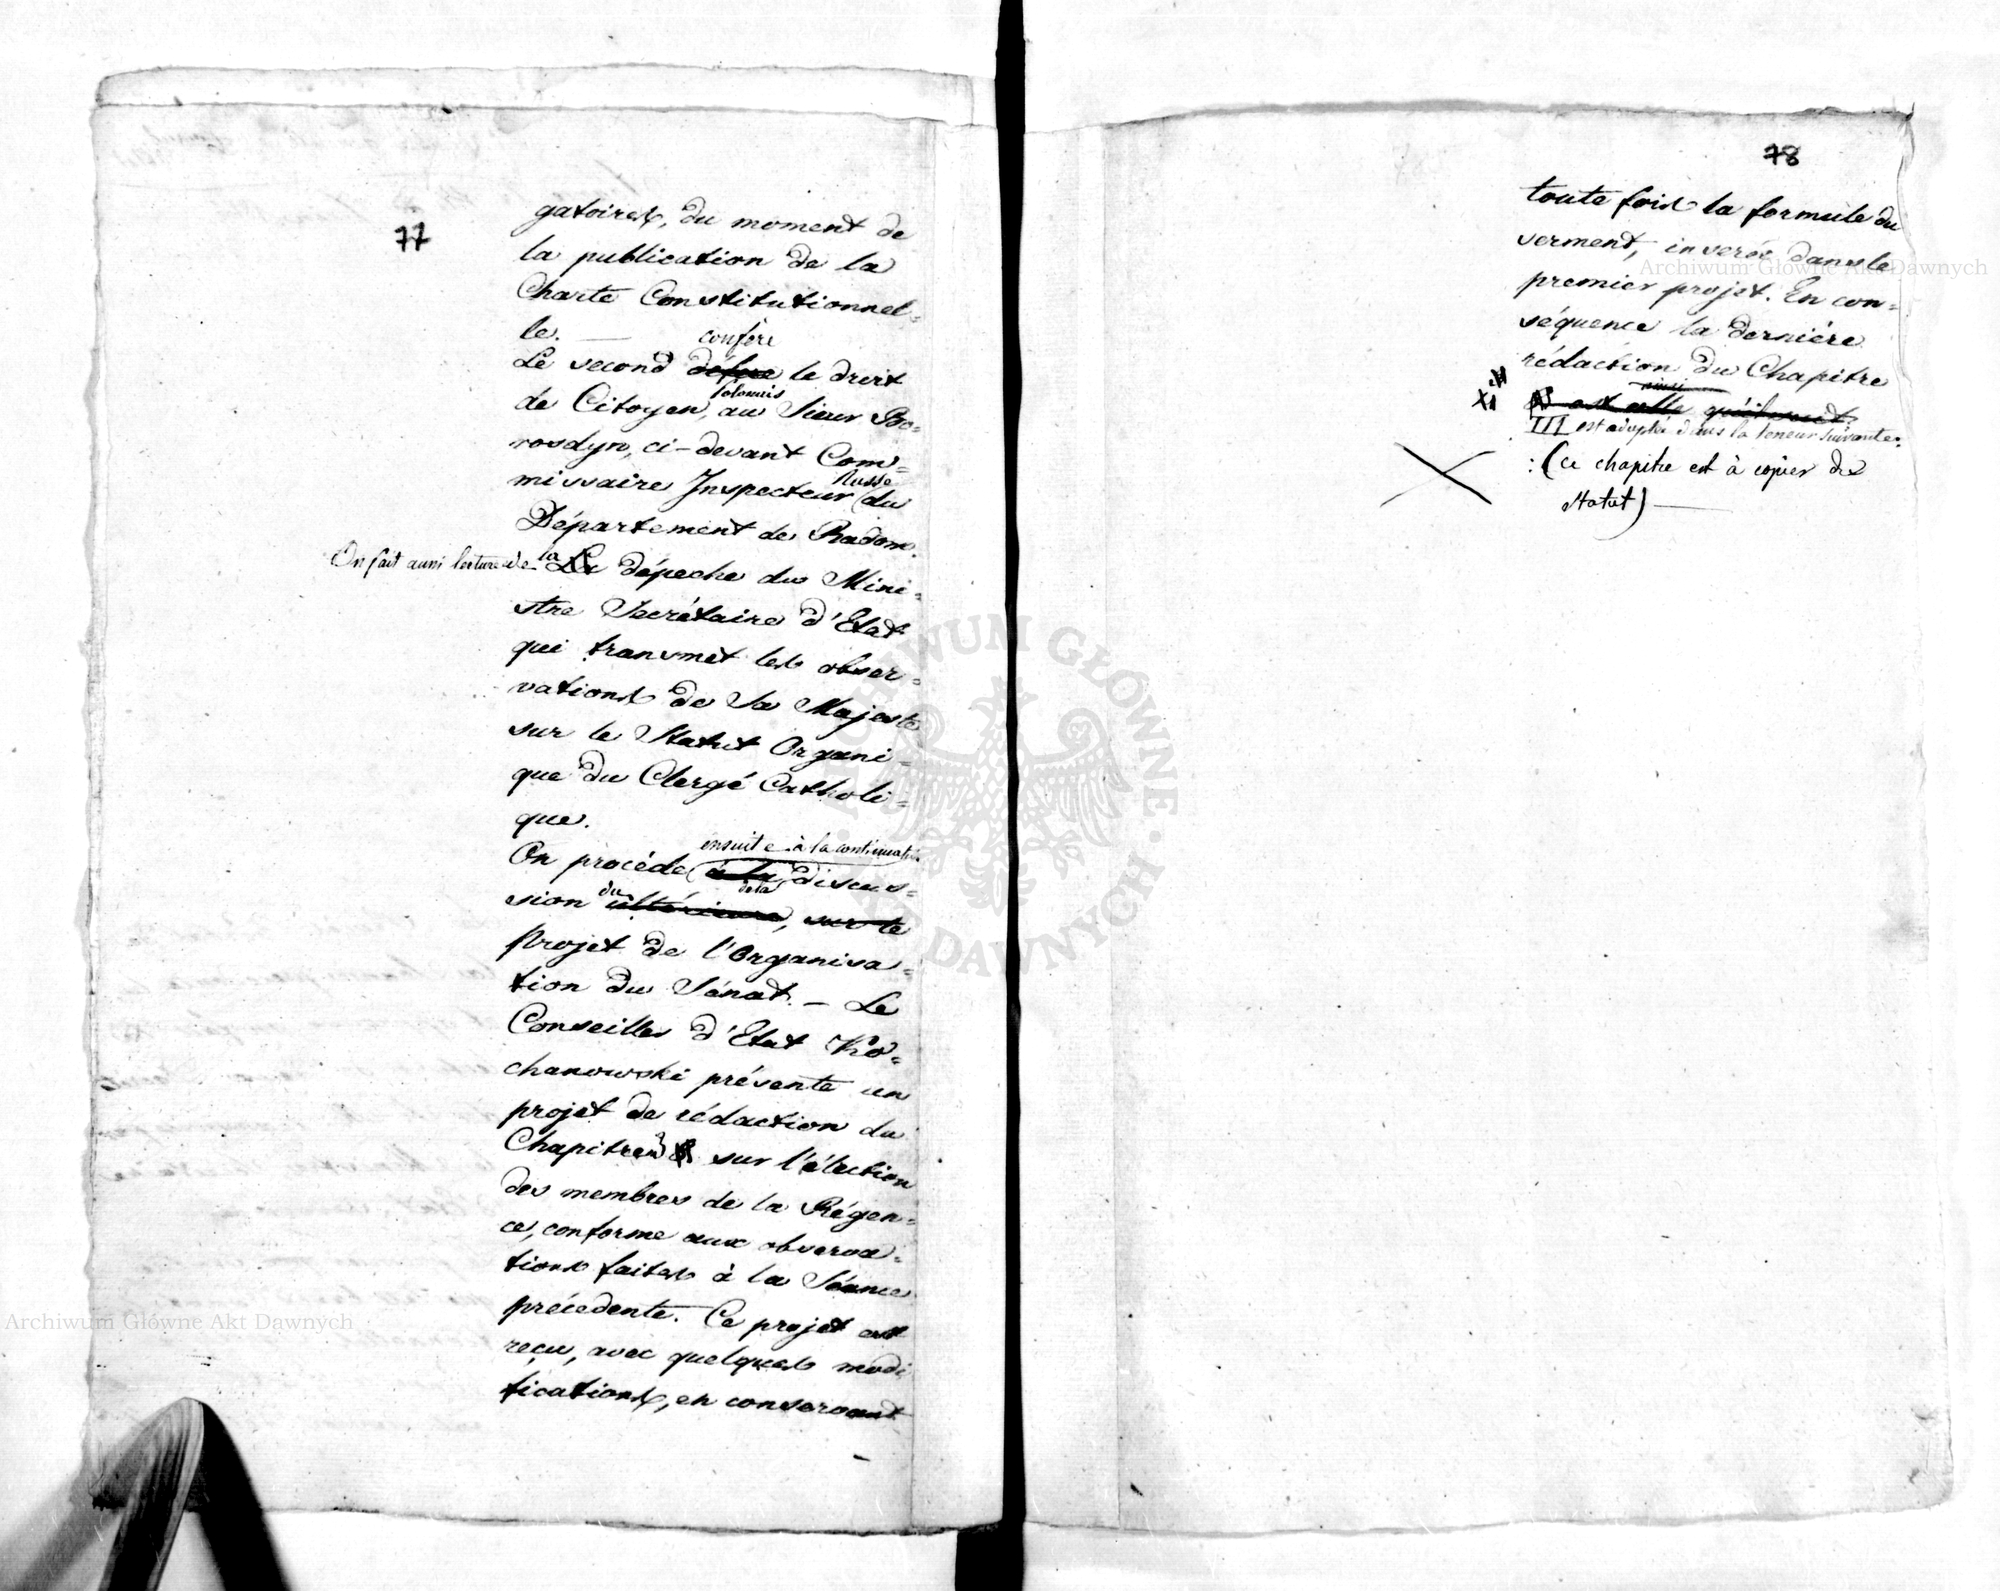 77
gatoires, du moment de
la publication de la
Charte Constitutionnel=
le. —
confère
Le second défere le droit
polonais
de Citoyen, au Sieur Bo-
rosdyn, ci-devant Com=
Russe
missaire Inspecteur du
Département de Radom.
On fait aussi lecture de la La dépeche du Mini=
stre Secrétaire d'Etat
qui transmet les obser=
vations de Sa Majesté
sur le Statut Organi=
que du Clergé Catholi=
que.
ensuite à la continuation
On procéde à la discus=
de la
sion du ultérieure, sur le
projet de l'Organisa=
tion du Sénat. — Le
Conseiller d'Etat Ko=
chanowski présente un
projet de rédaction du
Chapitre 3 sur l'élection
des membres de la Régen=
ce, conforme aux observa=
tions faites à la Séance
précedente. Ce projet est
reçu, avec quelques modi
fications, en conservant
78
toute fois la formule du
serment, inserée dans le
premier projet. En con=
séquence la dernière
rédaction du Chapitre
ainsi
est celle qu'il suit.
III est adopté dans la teneur suivante:
: (ce chapitre est à copier du
Statut) —
Archiwum Główne Akt Dawnych
Archiwum Główne Akt Dawnych
ARCHIWUM GŁÓWNE AKT DAWNYCH